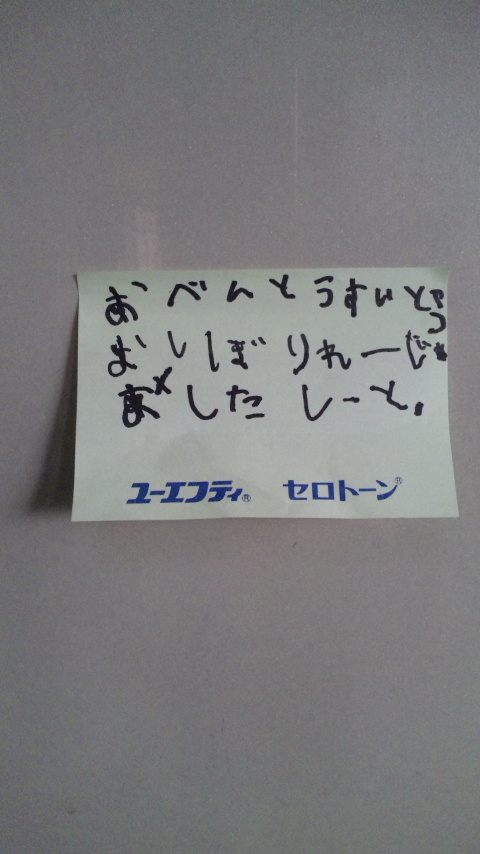 おべんとうすいとう
おししぼりれーじ
あしたしーと。
ユーエフティ® セロトーン®